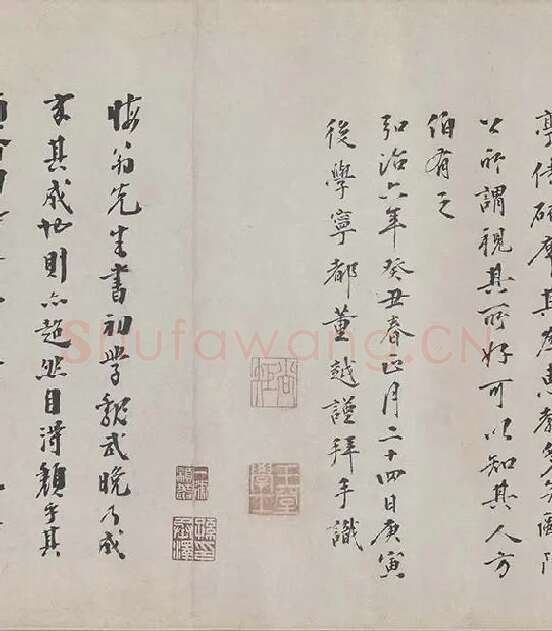 公所謂視其所好可以知其人方
伯有之
弘治六年癸丑春正月二十四日庚寅
後學寧都董越謹拜手識
晦翁先生書初學魏武晚乃成
其成也則亦超然自得顏乎其
Shufawang.CN